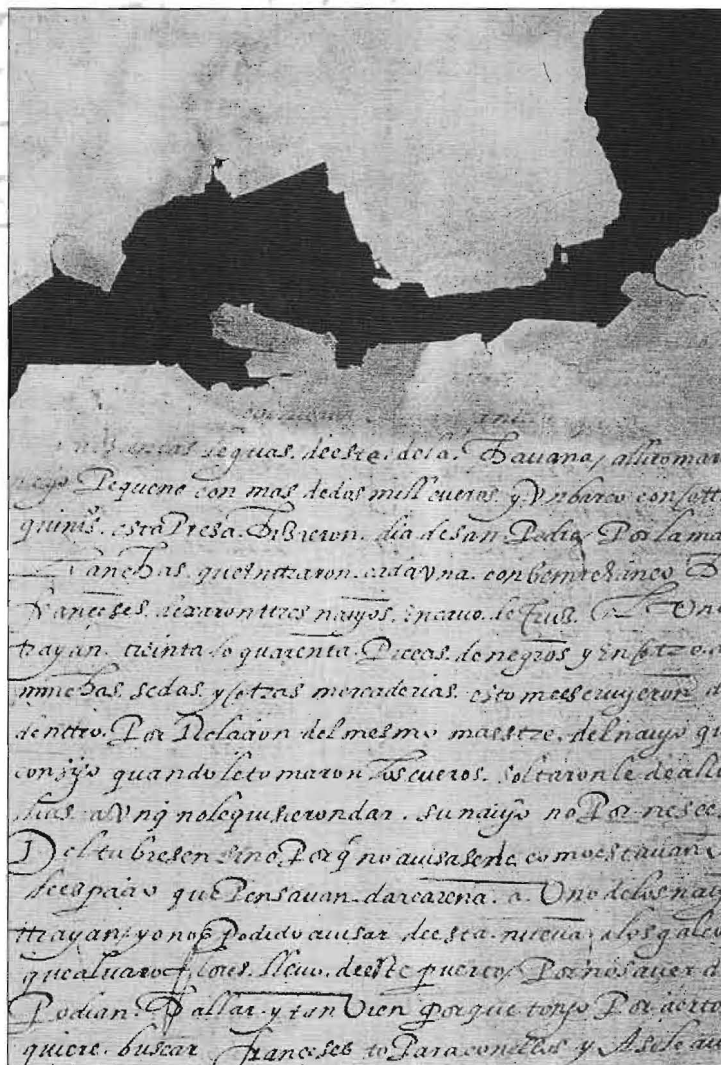 leguas. de esta. de la. Hauana, alli tomar
Pequeno con mas de dos mill cueros y Vn barco con
esta Presa. hizieron. dia de san Pedro, Por la ma
lanchas. que entraron. cada Vna. con beinte y cinco
franceses. dexaron ttres nauyos. en cauo. de Cruz.
trayan. treinta. o quarenta. Piecas. de negros y en
muchas. sedas. y otras mercaderias. esto me escriuyeron d
denttro. Por Relacion del mesmo maestre. del nauyo qu
consigo quando le tomaron los cueros. soltaron le de alli
dias. a Vnq no le quisieron dar. su nauyo no Por nesce
del tubiesen sino Porq no auisase de como estauan
despacio que Pensauan. dar carena. a. Uno de los nau
ttrayan, yo no e Podido auisar de esta. nueua. a los galeo
que aluaro flores. lleuo. de este puerto, Por no sauer d
Podian. hallar. y tan Vien porque tengo Por cierto
quiere. buscar franceses to Para con ellos y A se le au